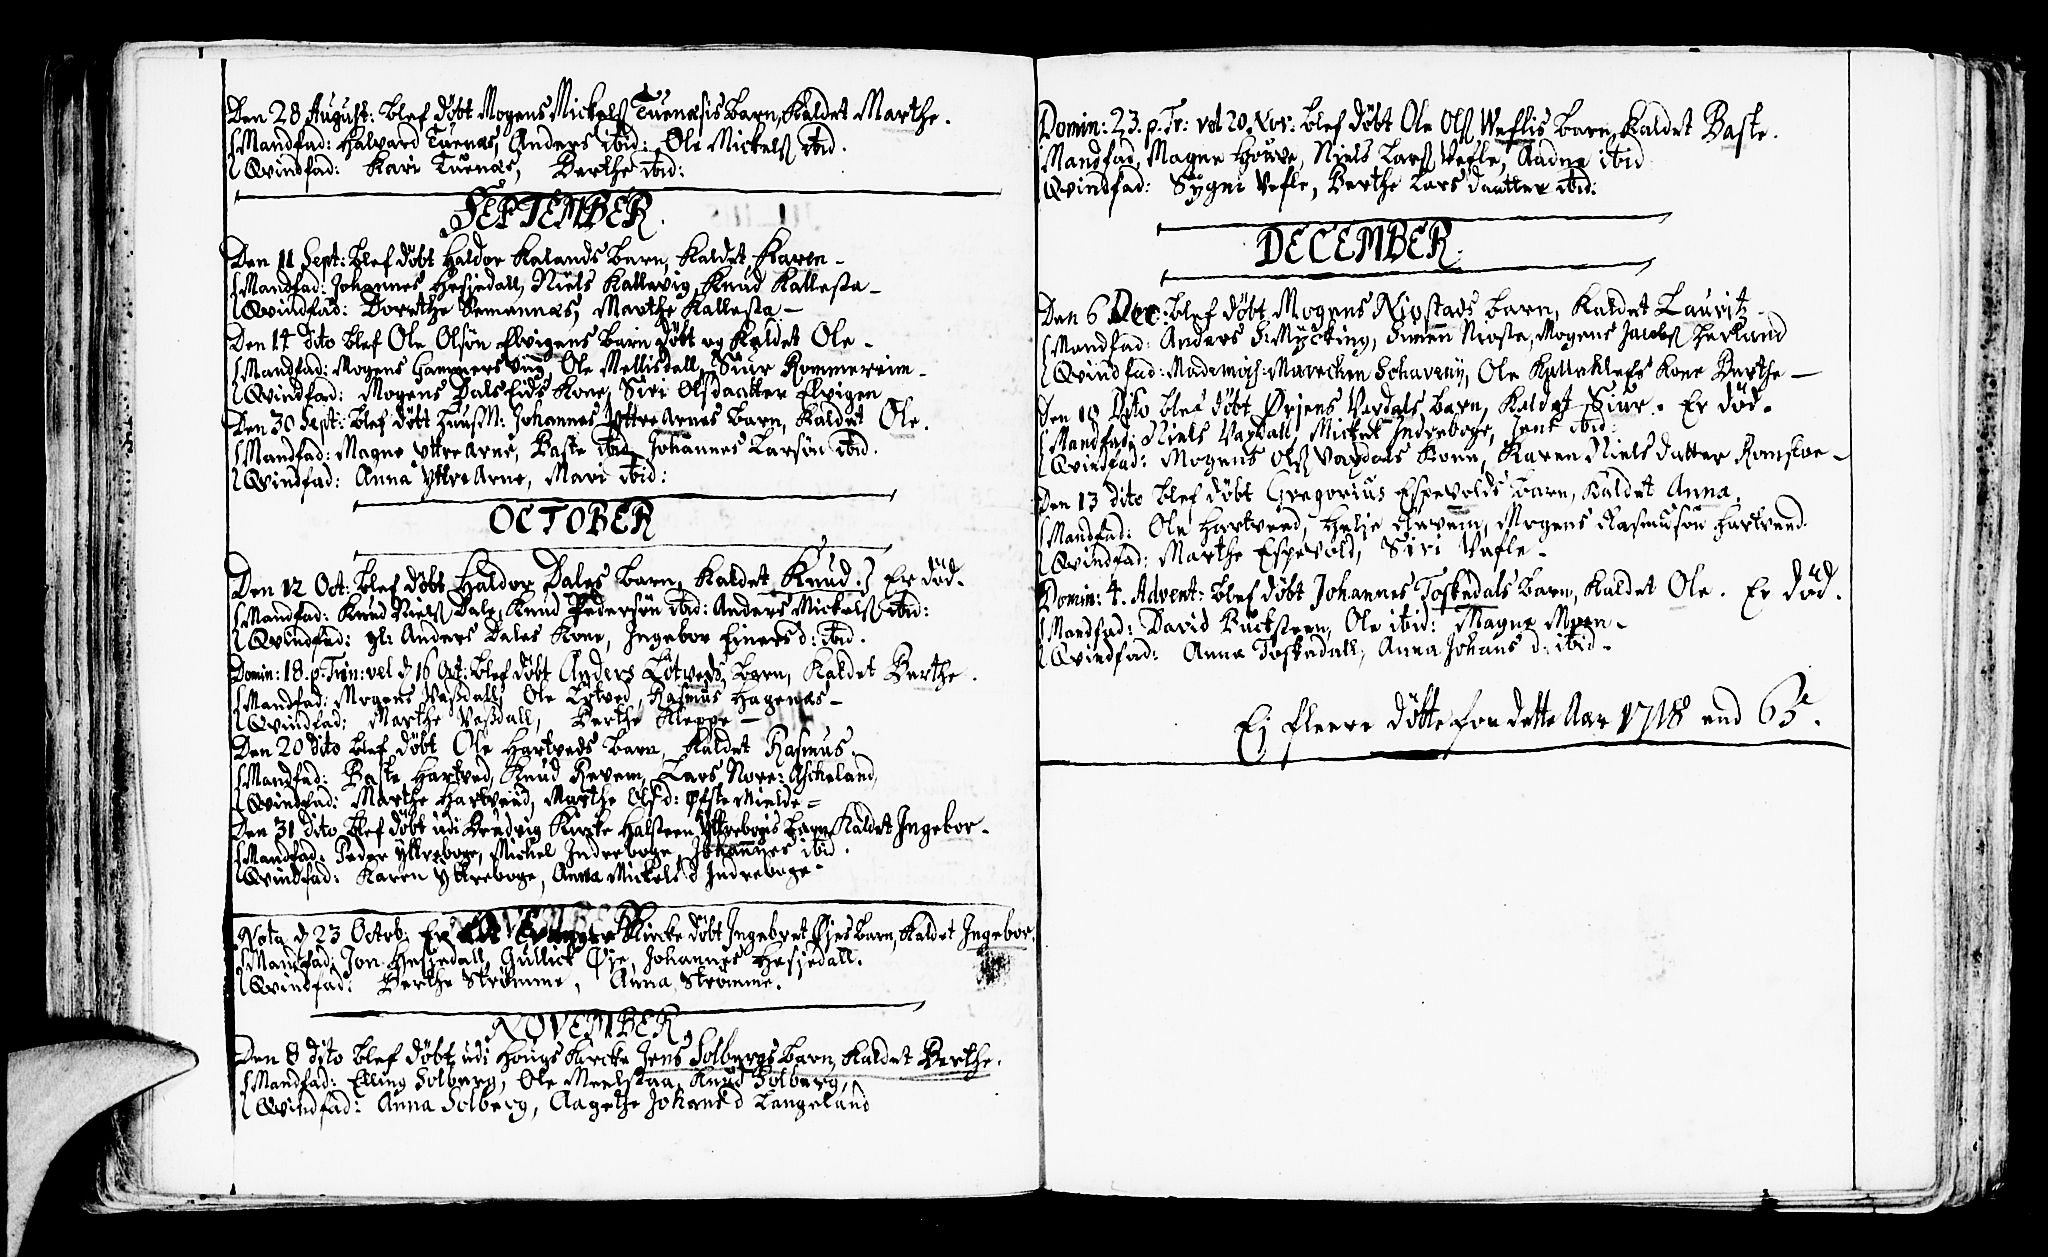 Den 28 August: blef døbt Mogens Mickelß Tuenæsis Barn, Kaldet Marthe.
Mandfad: Halvard Tuenæs, Anders ibid: Ole Mickelß ibid.
Qvindfad: Kari Tuenæs, Berthe ibid:
SEPTEMBER.
Den 11 Sept: blef døbt Haldor Kalands barn, Kaldet Karen –
Mandfad: Johannes Hesjedall, Niels Kallevig, Knud Kallesta –
Qvindfad: Dorethe Semannæs, Marthe Kallesta –
Den 14 dito blef Ole Olsøn Elvigens barn døbt og Kaldet Ole –
Mandfad: Mogens Hammers Ung, Ole Mellisdall, Siur Rommereim –
Qvindfad: Mogens Dalseids Kone, Siri Olsdaatter Elvigen
Den 30 Sept: blef døbt HuusM: Johannes Yttre Arnes barn, Kaldet Ole.
Mandfad: Magne Yttre Arne, Baste ibid, Johannes Larsøn ibid.
Qvindfad: Anna Yttre Arne, Mari ibid:
OCTOBER
Den 12 Oct: blef døbt Haldor Dales barn, Kaldet Knud. Er død.
Mandfad: Knud Nielß Dale, Knud Pedersøn ibid: Anders Mickelß ibid:
Qvindfad: gl: Anders Dales Kone, Ingebor Einersd: ibid.
Domin: 18. p. Trin: vel d 16 Oct: blef døbt Anders Løtveds barn, Kaldet Berthe.
Mandfad: Mogens Vaßdall, Ole Løtved, Rasmus Hagenæs –
Qvindfad: Marthe Vaßdall, Berthe Kleppe –
Den 20 dito blef døbt Ole Hartveds barn, Kaldet Rasmus.
Mandfad: Baste Hartved, Knud Revem, Lars Nore: Ascheland,
Qvindfad: Marthe Hartveed, Marthe Olsd: Øfste Mielde –
Den 31 dito blef døbt udi Brudvig Kircke Halsteen Yttreboris barn Kaldet Ingebor –
Mandfad: Peder Yttreboge, Mickel Indreboge, Johannes ibid.
Qvindfad: Karen Yttreboge, Anna Mickels d Indreboge –
Nota d 23 Octob: Er Kircke døbt Ingebret Øjes barn, Kaldet Ingebor.
Mandfad: Jon Hesjedall, Gullick Øje, Johannes Hesjedall.
Qvindfad: Berthe Strømme, Anna Strømme.
NOVEMBER
Den 8 dito blef døbt udi Hougs Kircke Jens Solbergs barn, Kaldet Berthe.
Mandfad: Elling Solberg, Ole Meelstaa, Knud Solberg,
Qvindfad: Anna Solberg, Aagethe Johans d Langeland
Domin: 23. p. Tr: vel 20 Nov: blef døbt Ole Olß Weflis barn, Kaldet Baste.
Mandfad, Magne Houve, Niels Larß Vefle, Aadne ibid
Qvindfad: Sygni Vefle, Berthe Lars daatter ibid:
DECEMBER.
Den 6 Dec: blef døbt Mogens Niostads barn, Kaldet Lauritz –
Mandfad: Anders S: Mycking, Simen Nioste, Mogens Jacobß Herland
Qvindfad: Mademois: Marechen Schaveny, Ole Kalleklefs Kone Berthe –
Den 10 Dito blef døbt Ørjens Vaxdals barn, Kaldet Siur. Er død.
Mandfad: Niels Vaxdall, Mickel Indreboge, Jens ibid:
Qvindfad: Mogens Olß Vaxdals Kone, Karen Niels datter Romsloe –
Den 13 dito blef døbt Gregorius Espevolds barn, Kaldet Anna.
Mandfad: Ole Hartveed, Helje Revem, Mogens Rasmusøn Hartveed.
Qvindfad: Marthe Espevold, Siri Vefle –
Domin: 4. Advent: blef døbt Johannes Toskedals barn, Kaldet Ole. Er død.
Mandfad: David Bucksteen, Ole ibid: Magne Moen –
Qvindfad: Anna Toskedall, Anna Johans d: ibid –
Ej fleere døbte for dette Aar 1718 end 65.